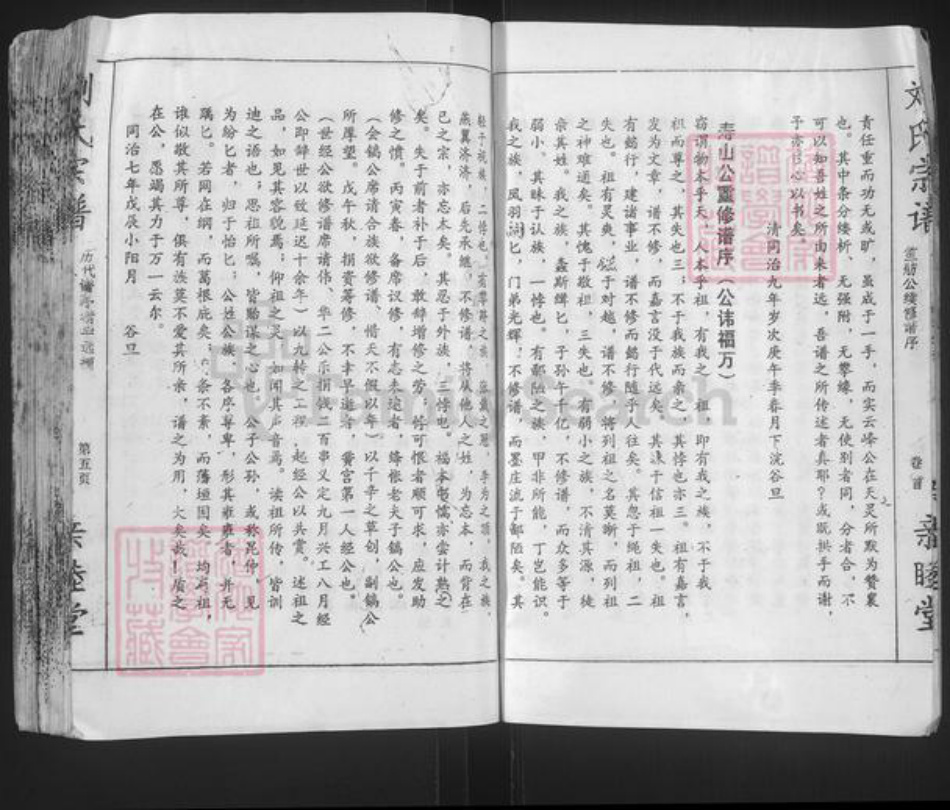 刘氏宗谱
卷首
亲睦堂
责任重而功无或旷，虽成于一手，而实云峰公在天灵所默为赞襄
也。其中条分缕析、无强附，无攀缘，无使别者同，分者合，不
可以如吾姓之所由来者远，吾谱之所传述者真耶？或既拱手而谢，
予亦 心以书矣。
清同治九年岁次庚午季春月下浣谷旦
寿山公重修谱序（公讳福万）
窃谓物本乎天，人本乎祖，有我之祖，即有我之族，不于我
祖而尊之，其失也三；不于我族而亲之，其悖也亦三。祖有嘉言，
发为文章，谱不修，而嘉言没于代远矣，其 于信祖一失也。祖
有懿行，建诸事业，谱不修而懿行随乎人往矣。其忽于绳祖，二
失也。祖有灵爽， 于对越，谱不修，将列祖之名莫晰，而列祖
之神难通矣。其愧于敬祖，三失也，有弱小之族，不清其源，徒
亲其姓。我之族，螽斯缉匕，子孙千亿，不修谱，而众多等于
弱小，其昧于认族，一悖也。有鄙陋之族，甲非所能，丁岂能识。
我之族，凤羽 匕，门弟光辉，不修谱，而墨庄流于鄙陋矣。其
轻于 族，二悖也。有 之族， 冠，李为之顶，我之族，
燕翼济济，后先承继，不修谱，将从他人之姓，为忘本，而背在
己之宗，亦忘本矣。其忍于外族，三悖也。福本 懦，亦尝计熟之
矣。失于前者补于后，敢辞增修之劳；哲可恨者顺可求，应发助
修之愤。丙寅春，备席议修，有志未逮者，缘怅老夫子镐公也。
（会镐公席请合族欲修谱，惜天不假以年）以千辛之草创，副镐公
所厚望。戊午秋，捐资筹修，不幸早逝者，黉宫第一人经公也。
（世经公欲修谱席请伟、华二公示捐钱二百串义定九月兴工八月经
公即辞世以致延迟十余年）以九转之工程，起经公以共赏。述祖之
品，如见其容貌焉；仰祖之灵，如闻其声音焉。读祖所传，皆训
迪之语也；思祖所嘱，皆贻谋之心也。公子公孙，或称昆仲，见
为纷匕者，归于怡匕；公姓公族，各序尊卑，形其雍雍者，并无
踽匕。若网在纲，而葛根庇矣；条不紊，而藩垣固矣。均为祖，
谁似敬其所尊，俱有族莫不爱其所亲，谱之为用，大矣哉！质之
在公，愿竭其力于万一云尔。
同治七年戊辰小阳月 谷旦
第五页
FamilySearch